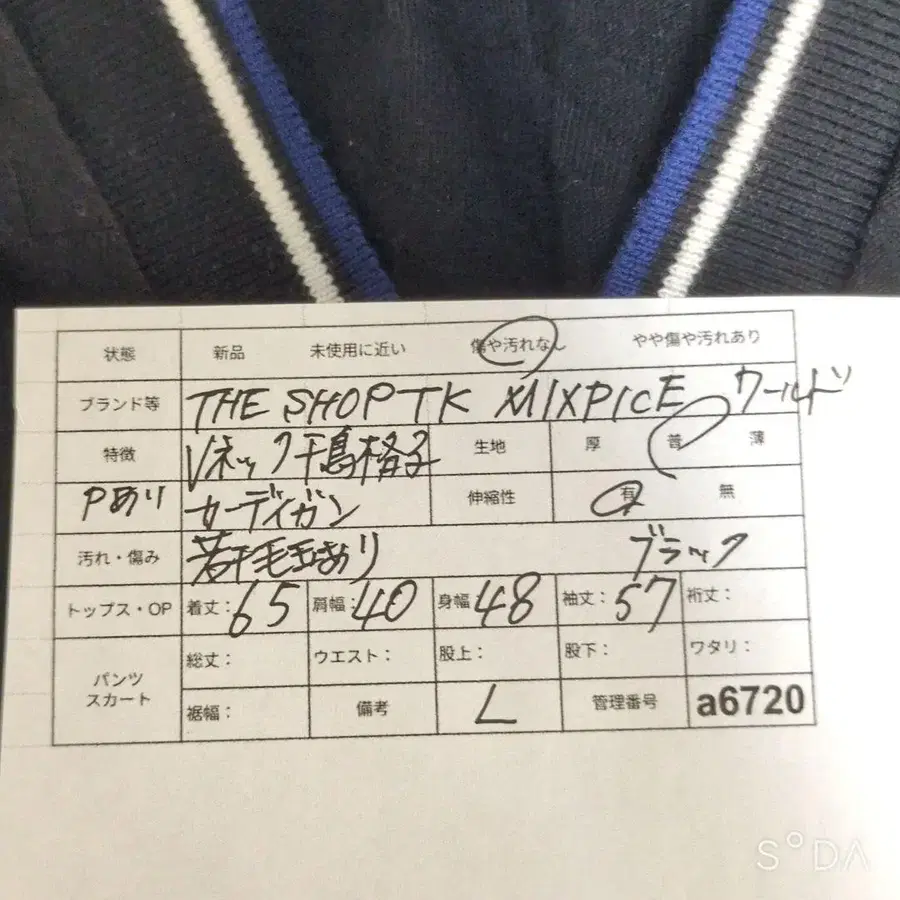 状態 新品 未使用に近い 傷や汚れなし やや傷や汚れあり
ブランド等 THE SHOP TK MIXPICE ワールド
特徴 Vネック千鳥格子 生地 厚 普 薄
Pあり カーディガン 伸縮性 有 無
汚れ・傷み 若干毛玉あり ブラック
トップス・OP 着丈：65 肩幅：40 身幅：48 袖丈：57 裄丈：
パンツ スカート 総丈： ウエスト： 股上： 股下： ワタリ：
裾幅： 備考 L 管理番号 a6720
SODA